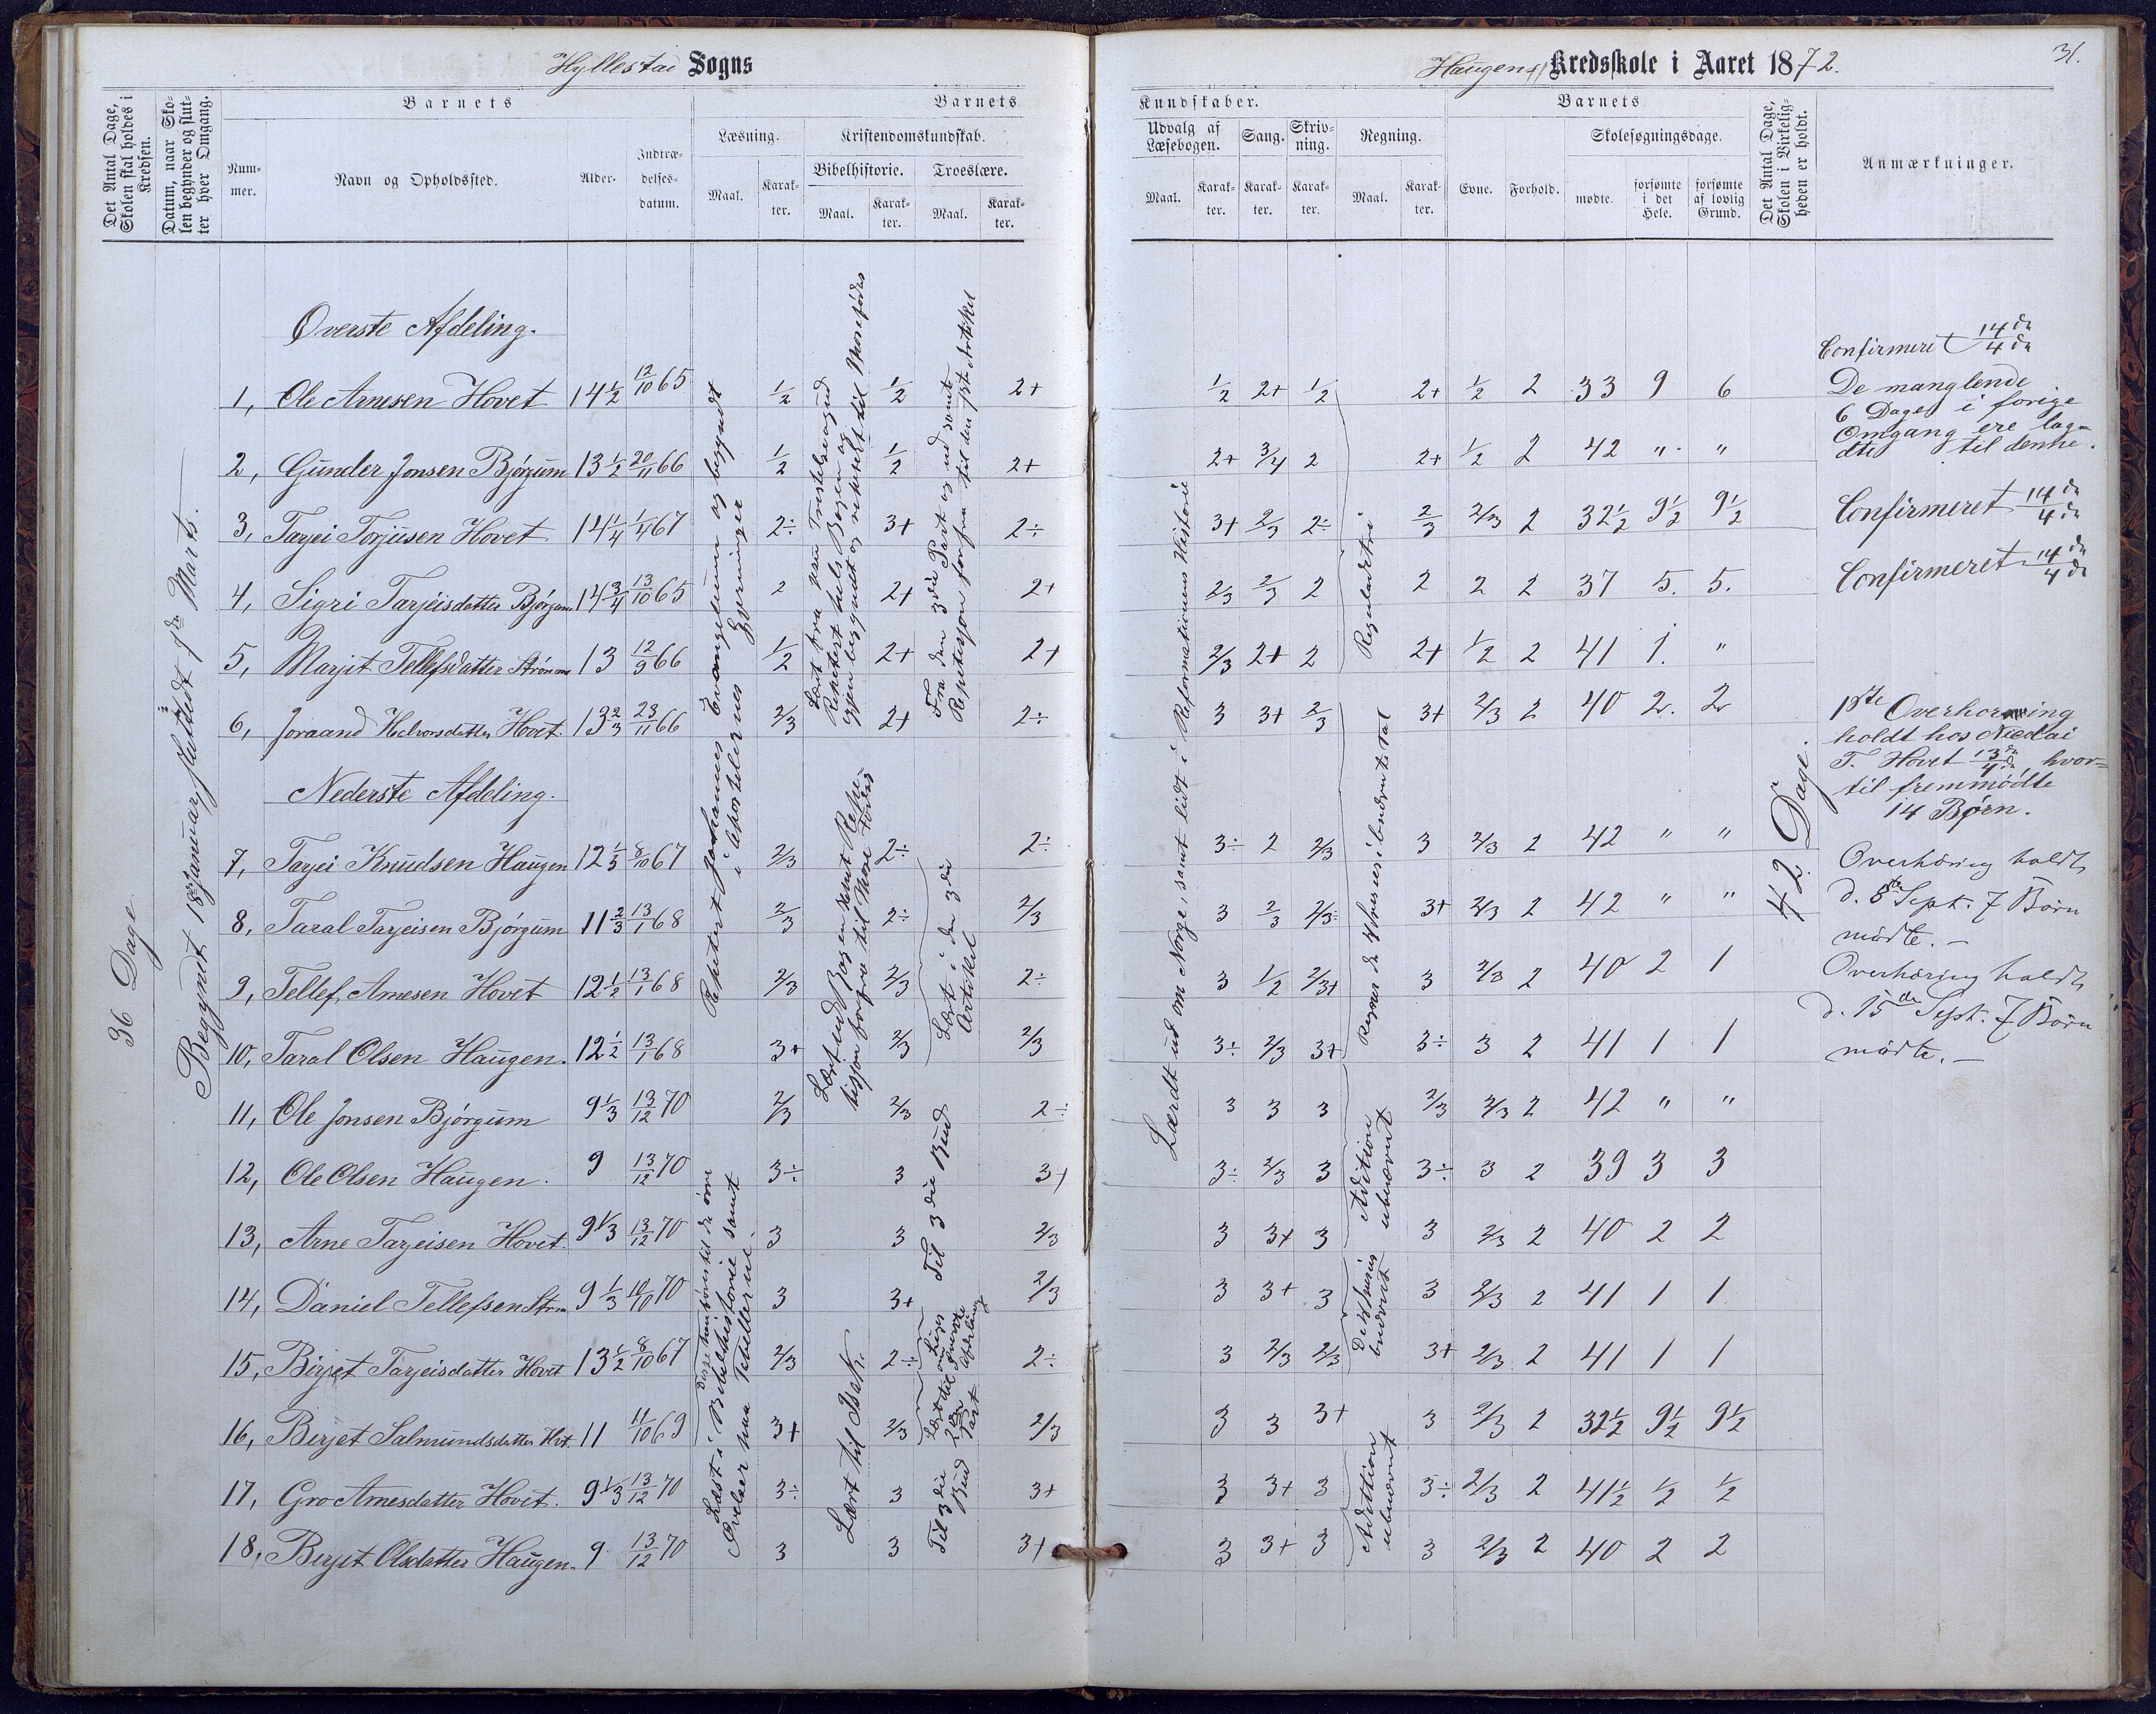 Hyllestad Sogns
Haugens Kredsskole i Aaret 1872.
31.
Det Antal Dage, Skolen skal holdes i Kredsen.
Datum, naar Skolen begynder og slutter hver Omgang.
Barnets
Nummer.
Navn og Opholdssted.
Alder.
Indtrædelsesdatum.
Barnets
Læsning.
Kristendomskundskab.
Bibelhistorie.
Troeslære.
Maal.
Karakter.
Maal.
Karakter.
Maal.
Karakter.
Kundskaber.
Udvalg af Læsebogen.
Sang.
Skrivning.
Regning.
Maal.
Karakter.
Karakter.
Karakter.
Maal.
Karakter.
Barnets
Evne.
Forhold.
Skolesøgningsdage.
mødte.
forsømte i det Hele.
forsømte af lovlig Grund.
Det Antal Dage, Skolen i Virkeligheden er holdt.
Anmærkninger.
36 Dage
Begyndt 18de Januar, sluttedt 9de Marts.
Øverste Afdeling.
1, Ole Arnesen Hovet 14½ 12/10 65 ½ ½ 2+ ½ 2+ ½ 2+ ½ 2 33 9 6
2, Gunder Jonsen Bjørgum 13½ 20/11 66 ½ ½ 2+ 2+ 3/4 2 2+ ½ 2 42 " "
3, Tarjei Torjusen Hovet 14¼ 1/4 67 2÷ 3+ 2÷ 3+ 2/3 2÷ 2/3 2/3 2 32½ 9½ 9½
4, Sigri Tarjeisdatter Bjørgum 14¾ 13/10 65 2 2+ 2+ 2/3 2/3 2 2 2 2 37 5. 5.
5, Marjit Tellefsdatter Strømm 13 12/9 66 ½ 2+ 2+ 2/3 2+ 2 2+ ½ 2 41 1. "
6, Joraand Halvorsdatter Hovet. 13 2/3 23/11 66 2/3 2+ 2÷ 3 3+ 2/3 3+ 2/3 2 40 2. 2
Nederste Afdeling.
7, Tarjei Knudsen Haugen 12 1/3 8/10 67 2/3 2÷ 2÷ 3÷ 2 2/3 3 2/3 2 42 " "
8, Taral Tarjeisen Bjørgum 11 2/3 13/1 68 2/3 2÷ 2/3 3 2/3 2/3÷ 3+ 2/3 2 42 " "
9, Tellef Arnesen Hovet 12½ 13/1 68 2/3 2/3 2÷ 3 ½ 2/3+ 3 2/3 2 40 2 1
10, Taral Olsen Haugen. 12½ 13/1 68 3+ 2/3 2/3 3÷ 2/3 3+ 3÷ 3 2 41 1 1
11, Ole Jonsen Bjørgum 9 1/3 13/12 70 2/3 2/3 2÷ 3 3 3 2/3 2/3 2 42 " "
12, Ole Olsen Haugen. 9 13/12 70 3÷ 3 3+ 3÷ 2/3 3 3÷ 3 2 39 3 3
13, Arne Tarjeisen Hovet. 9 1/3 13/12 70 3 3 2/3 3 3+ 3 3 2/3 2 40 2 2
14, Daniel Tellefsen Strm 9 1/3 10/10 70 3 3+ 2/3 3 3+ 3 3 2/3 2 41 1 1
15, Birjet Tarjeisdatter Hovet 13½ 8/10 67 2/3 2÷ 2÷ 3 2/3 2/3 3+ 2/3 2 41 1 1
16, Birjet Salmundsdatter Hvt. 11 11/10 69 3+ 2/3 2/3 3 3 3+ 3 2/3 2 32½ 9½ 9½
17, Gro Arnesdatter Hovet. 9 1/3 13/12 70 3÷ 3 3+ 3 3+ 3 3÷ 2/3 2 41½ ½ ½
18, Birjet Olsdatter Haugen. 9 13/12 70 3 3 3+ 3 3+ 3 3 2/3 2 40 2 2
Repetert Johannes Evangelium og begyndt
i Apostelernes Gjerninger
Læst i Bibelhistorie samt
Øvelser paa Tabellerne.
Lært til Isak.
Lært i den 3die
Artikel
Til 3die Bud
Til 3die
Bud
Lærdt ud om Norge, samt lidt i Reformationens Historie
Reguladetri
Adition
ubnævnt
Adittion
ubnævnt
42 Dage.
Confirmeret 14de/4de
De manglende
6 Dage i forige
Omgang ere lag-
dte til denne.
Confirmeret 14de/4de
Confirmeret 14de/4de
1ste Overhorning
holdt hos Nicolai
T. Hovet 13de/4de, hvor-
til fremmødte
14 Børn.
Overhøring holdt
d. 8de Sept. 7 Børn
mødte. —
Overhøring holdt
d. 15de Sept. 7 Børn
mødte. —